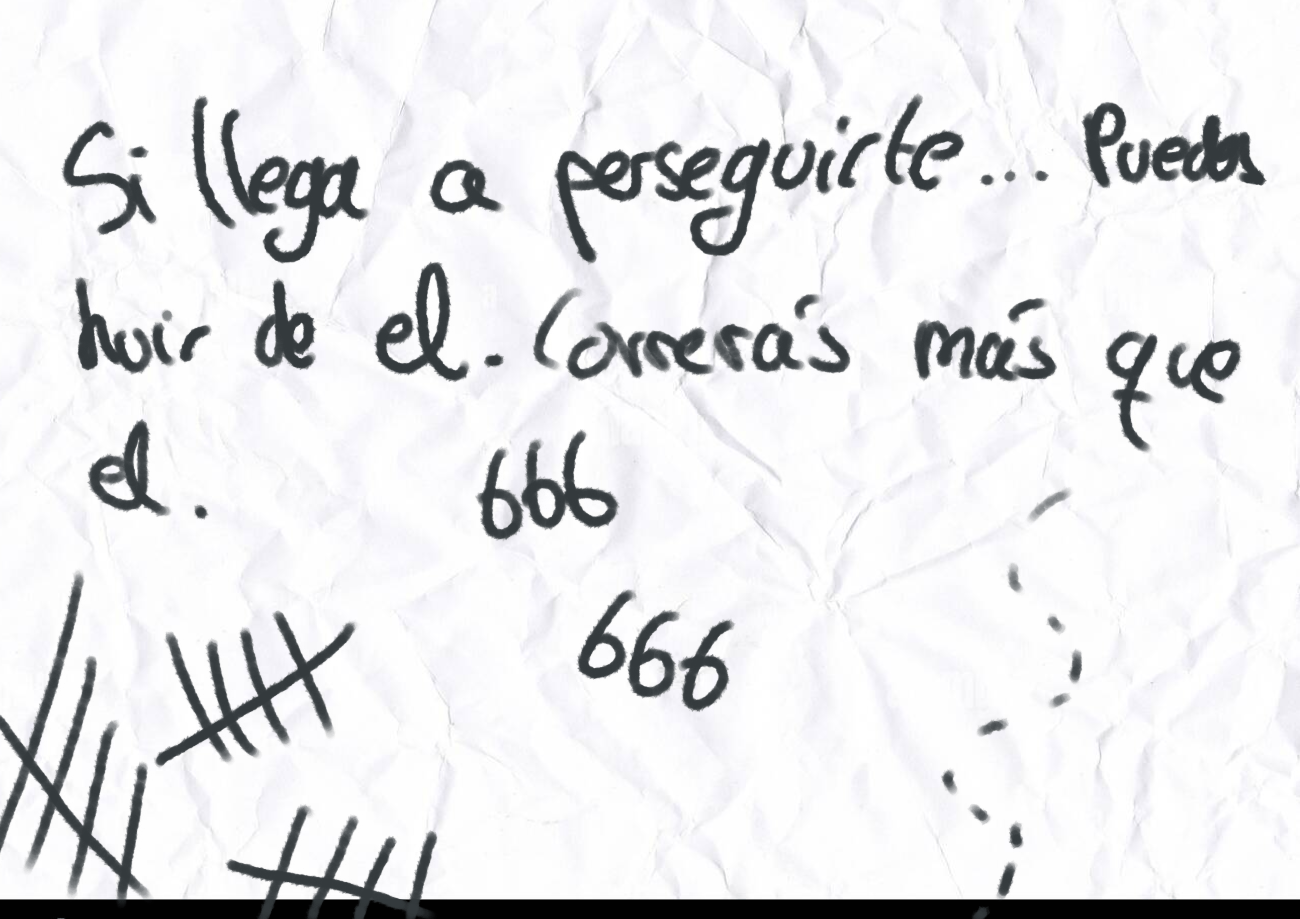 Si llega a perseguirte... Puedes
huir de el. Correrás más que
el.
666
666